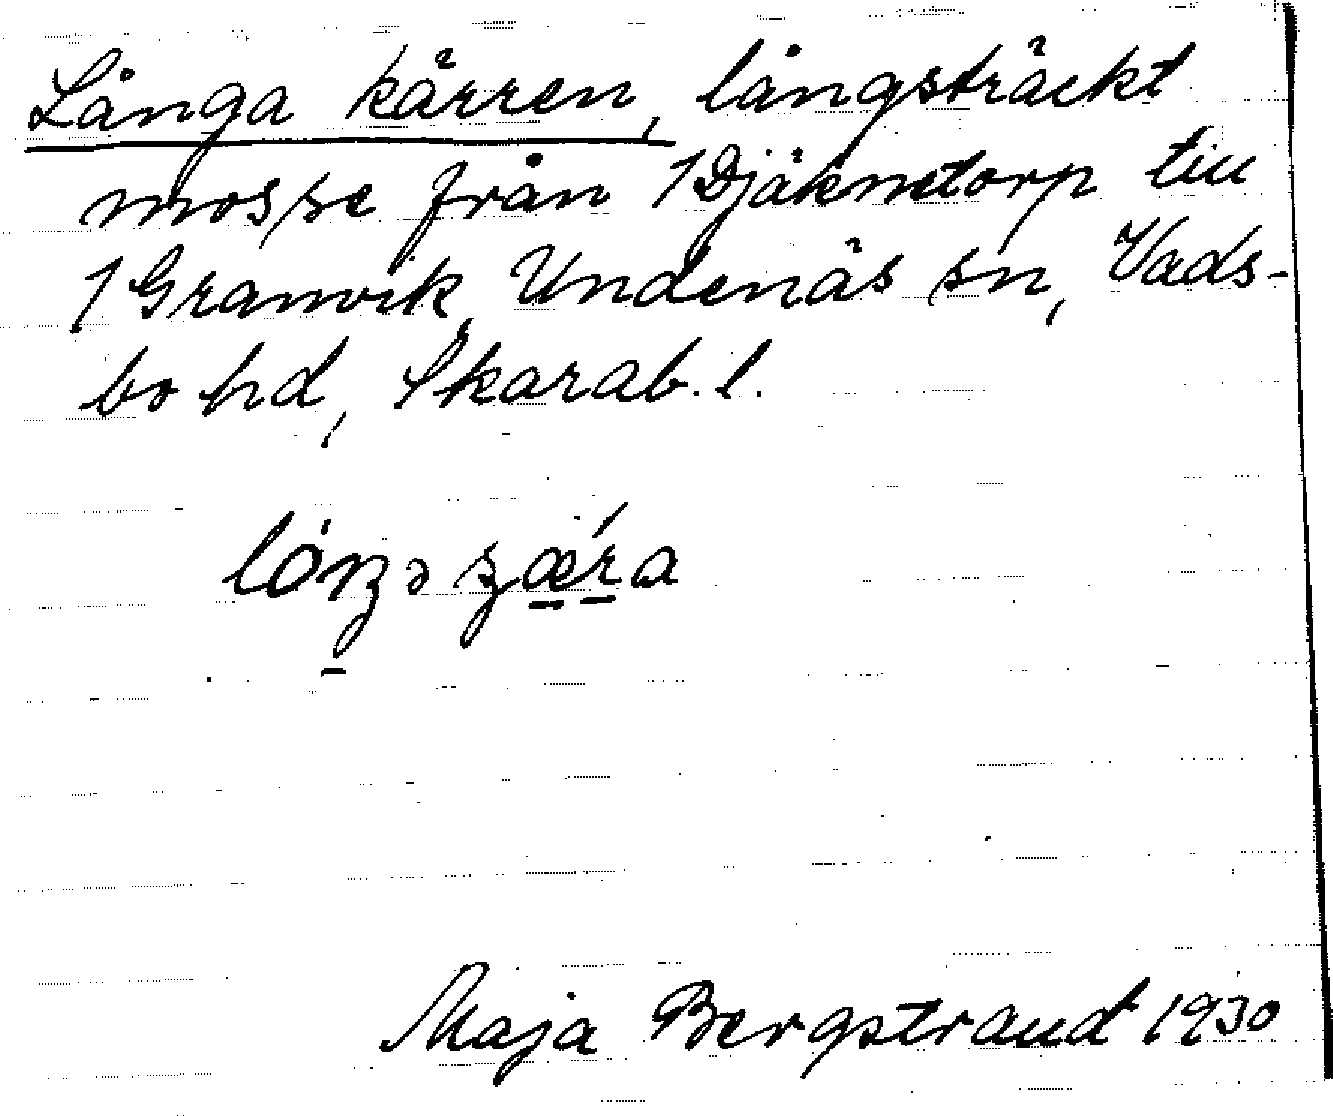 Långa kärren, långsträckt
mosse från 1 Djäknetorp till
1 Granvik, Undenäs sn, Vads-
bo hd, Skarab. l.
Maja Bergstrand 1930